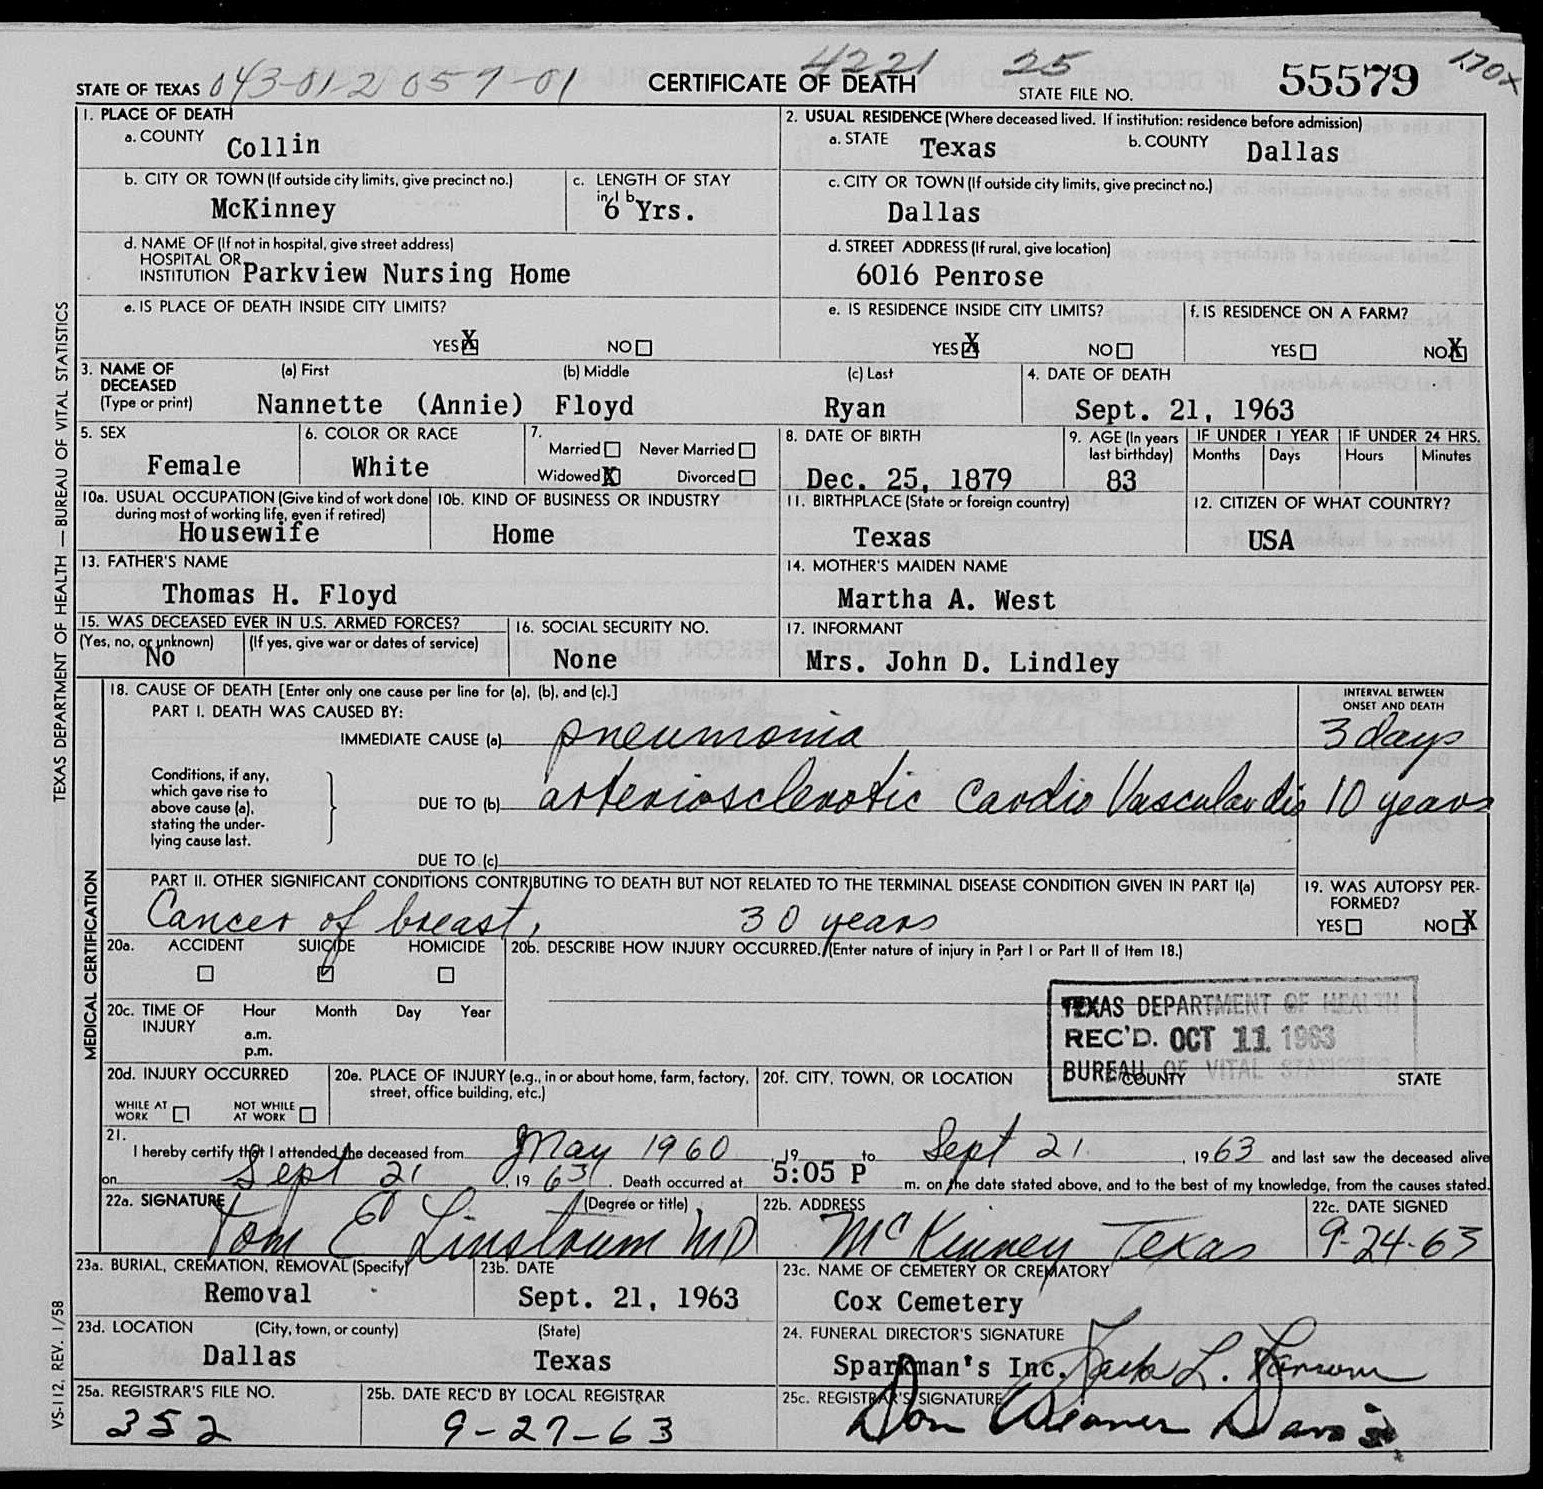 4221 25 170x
STATE OF TEXAS 043-012 057-01 CERTIFICATE OF DEATH STATE FILE NO. 55579
TEXAS DEPARTMENT OF HEALTH — BUREAU OF VITAL STATISTICS
1. PLACE OF DEATH
a. COUNTY Collin
2. USUAL RESIDENCE (Where deceased lived. If institution: residence before admission)
a. STATE Texas b. COUNTY Dallas
b. CITY OR TOWN (If outside city limits, give precinct no.) McKinney
c. LENGTH OF STAY in 1 b 6 Yrs.
c. CITY OR TOWN (If outside city limits, give precinct no.) Dallas
d. NAME OF (If not in hospital, give street address)
HOSPITAL OR
INSTITUTION Parkview Nursing Home
d. STREET ADDRESS (If rural, give location)
6016 Penrose
e. IS PLACE OF DEATH INSIDE CITY LIMITS?
YES X NO
e. IS RESIDENCE INSIDE CITY LIMITS?
YES X NO
f. IS RESIDENCE ON A FARM?
YES NO X
3. NAME OF DECEASED (Type or print)
(a) First (b) Middle (c) Last
Nannette (Annie) Floyd Ryan
4. DATE OF DEATH
Sept. 21, 1963
5. SEX
Female
6. COLOR OR RACE
White
7. Married Never Married
Widowed X Divorced
8. DATE OF BIRTH
Dec. 25, 1879
9. AGE (In years last birthday)
83
IF UNDER 1 YEAR IF UNDER 24 HRS.
Months Days Hours Minutes
10a. USUAL OCCUPATION (Give kind of work done during most of working life, even if retired)
Housewife
10b. KIND OF BUSINESS OR INDUSTRY
Home
11. BIRTHPLACE (State or foreign country)
Texas
12. CITIZEN OF WHAT COUNTRY?
USA
13. FATHER'S NAME
Thomas H. Floyd
14. MOTHER'S MAIDEN NAME
Martha A. West
15. WAS DECEASED EVER IN U.S. ARMED FORCES?
(Yes, no, or unknown) (If yes, give war or dates of service)
No
16. SOCIAL SECURITY NO.
None
17. INFORMANT
Mrs. John D. Lindley
MEDICAL CERTIFICATION
18. CAUSE OF DEATH [Enter only one cause per line for (a), (b), and (c).]
INTERVAL BETWEEN ONSET AND DEATH
PART I. DEATH WAS CAUSED BY:
IMMEDIATE CAUSE (a) pneumonia 3 days
Conditions, if any, which gave rise to above cause (a), stating the underlying cause last.
DUE TO (b) arteriosclerotic Cardio Vascular dis 10 years
DUE TO (c)
PART II. OTHER SIGNIFICANT CONDITIONS CONTRIBUTING TO DEATH BUT NOT RELATED TO THE TERMINAL DISEASE CONDITION GIVEN IN PART I(a)
Cancer of breast, 30 years
19. WAS AUTOPSY PERFORMED?
YES NO X
20a. ACCIDENT SUICIDE HOMICIDE
20b. DESCRIBE HOW INJURY OCCURRED. (Enter nature of injury in Part I or Part II of Item 18.)
20c. TIME OF INJURY Hour Month Day Year
a.m.
p.m.
TEXAS DEPARTMENT OF HEALTH
REC'D. OCT 11 1963
BUREAU OF VITAL STATISTICS
20d. INJURY OCCURRED
WHILE AT WORK NOT WHILE AT WORK
20e. PLACE OF INJURY (e.g., in or about home, farm, factory, street, office building, etc.)
20f. CITY, TOWN, OR LOCATION COUNTY STATE
21. I hereby certify that I attended the deceased from May 1960, 19 to Sept 21, 1963 and last saw the deceased alive
on Sept 21, 1963. Death occurred at 5:05 P m. on the date stated above, and to the best of my knowledge, from the causes stated.
22a. SIGNATURE (Degree or title)
Tom E Linstrum MD
22b. ADDRESS
McKinney Texas
22c. DATE SIGNED
9-24-63
23a. BURIAL, CREMATION, REMOVAL (Specify)
Removal
23b. DATE
Sept. 21, 1963
23c. NAME OF CEMETERY OR CREMATORY
Cox Cemetery
23d. LOCATION (City, town, or county) (State)
Dallas Texas
24. FUNERAL DIRECTOR'S SIGNATURE
Sparkman's Inc. Jack L.
25a. REGISTRAR'S FILE NO.
352
25b. DATE REC'D BY LOCAL REGISTRAR
9-27-63
25c. REGISTRAR'S SIGNATURE
Don Weaver Davis
VS-112, REV. 1/58